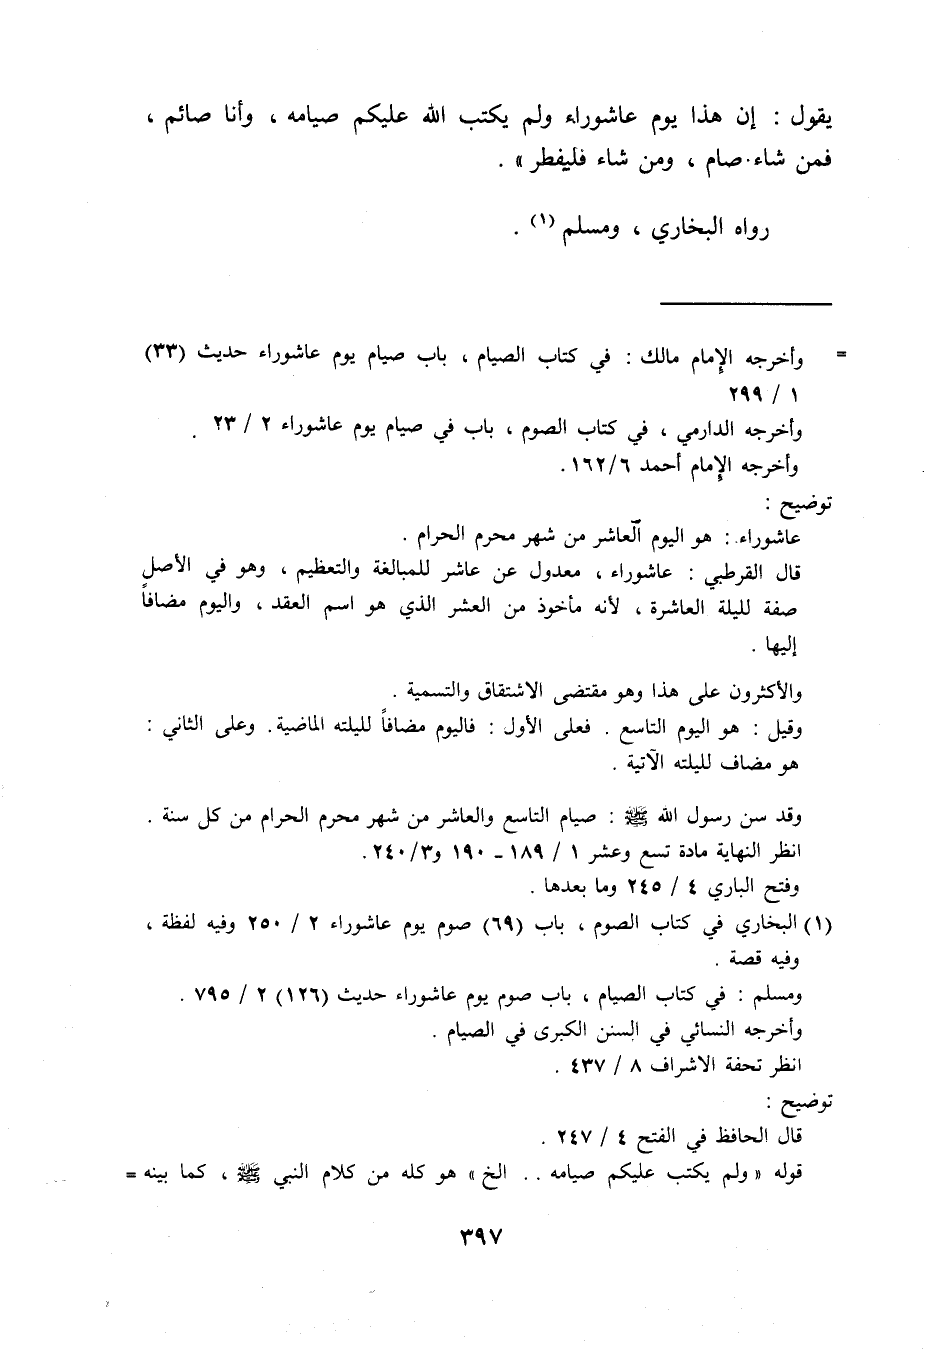 يقول : إن هذا يوم عاشوراء ولم يكتب الله عليكم صيامه ، وأنا صائم ،
فمن شاء صام ، ومن شاء فليفطر » .
رواه البخاري ، ومسلم (١) .
= وأخرجه الإمام مالك : في كتاب الصيام ، باب صيام يوم عاشوراء حديث (٣٣)
١ / ٢٩٩
وأخرجه الدارمي ، في كتاب الصوم ، باب في صيام يوم عاشوراء ٢ / ٢٣ .
وأخرجه الإمام أحمد ٦/١٦٢.
توضيح :
عاشوراء : هو اليوم العاشر من شهر محرم الحرام .
قال القرطبي : عاشوراء ، معدول عن عاشر للمبالغة والتعظيم ، وهو في الأصل
صفة لليلة العاشرة ، لأنه مأخوذ من العشر الذي هو اسم العقد ، واليوم مضافاً
إليها .
والأكثرون على هذا وهو مقتضى الاشتقاق والتسمية .
وقيل : هو اليوم التاسع . فعلى الأول : فاليوم مضافاً لليلته الماضية. وعلى الثاني :
هو مضاف لليلته الآتية .
وقد سن رسول الله ﷺ : صيام التاسع والعاشر من شهر محرم الحرام من كل سنة .
انظر النهاية مادة تسع وعشر ١ / ١٨٩ ـ ١٩٠ و٢٤٠/٣.
وفتح الباري ٤ / ٢٤٥ وما بعدها .
(١) البخاري في كتاب الصوم ، باب (٦٩) صوم يوم عاشوراء ٢ / ٢٥٠ وفيه لفظة ،
وفيه قصة .
ومسلم : في كتاب الصيام ، باب صوم يوم عاشوراء حديث (١٢٦) ٢ / ٧٩٥ .
وأخرجه النسائي في السنن الكبرى في الصيام .
انظر تحفة الاشراف ٨ / ٤٣٧ .
توضيح :
قال الحافظ في الفتح ٤ / ٢٤٧ .
قوله « ولم يكتب عليكم صيامه . . الخ » هو كله من كلام النبي ﷺ ، كما بينه =
٣٩٧